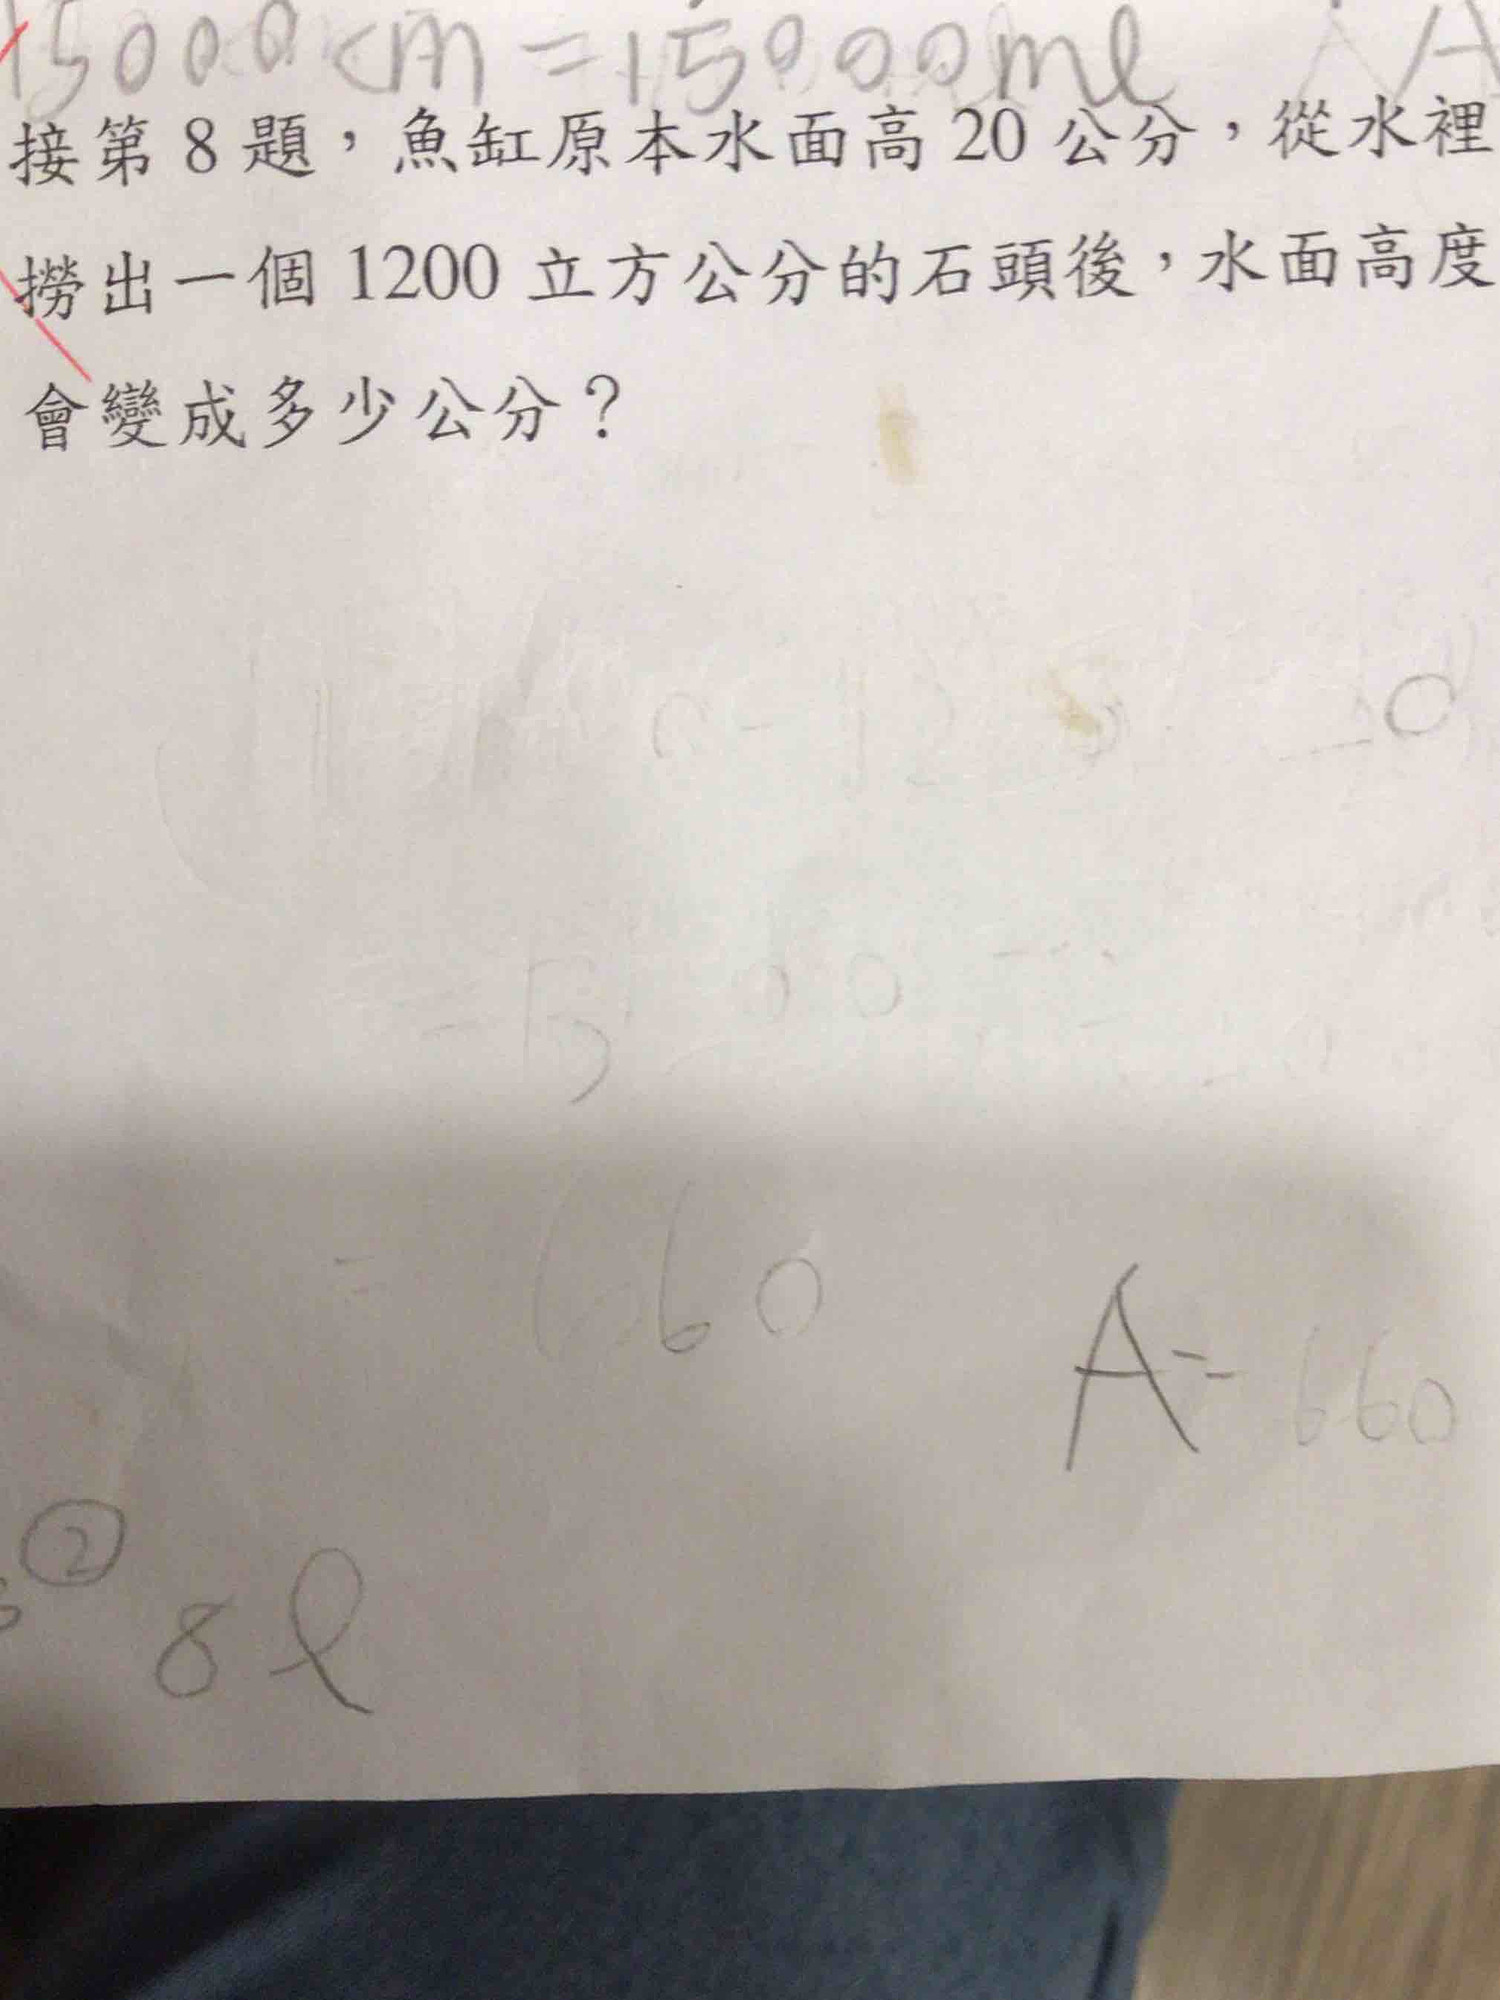 15000cm=15000ml A
接第8題，魚缸原本水面高20公分，從水裡
撈出一個1200立方公分的石頭後，水面高度
會變成多少公分？
=660
A=660
②
8ℓ